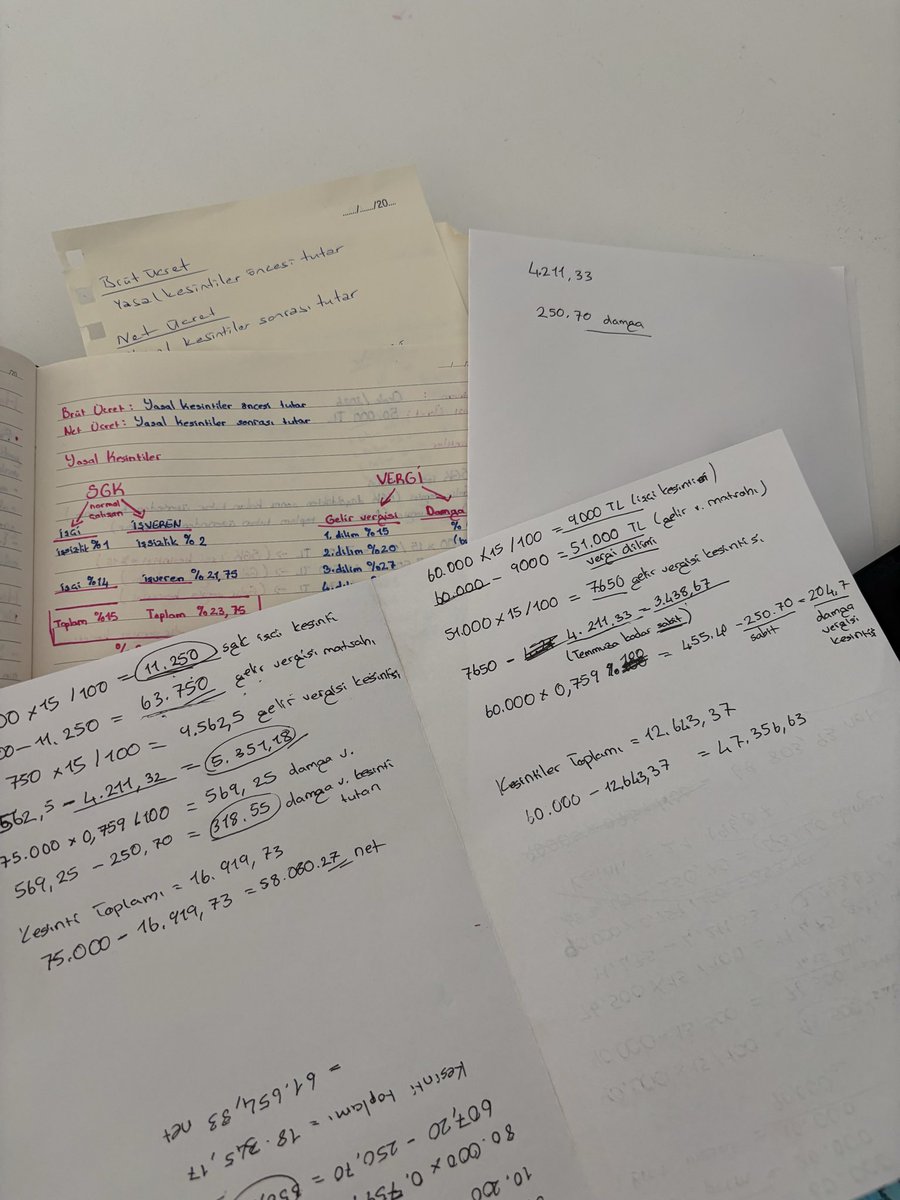 ..../..../20....
Brüt Ücret
Yasal kesintiler öncesi tutar
Net Ücret
kesintiler sonrası tutar
4.211,33
250.70 damga
Brüt Ücret: Yasal kesintiler öncesi tutar
Net Ücret: Yasal kesintiler sonrası tutar
Yasal Kesintiler
SGK
normal çalışan
İşçi
İŞVEREN
işsizlik %1
işsizlik %2
işçi %14
işveren %21,75
Toplam %15
Toplam %23,75
VERGİ
Gelir vergisi
Damga
1. dilim %15
2. dilim %20
3. dilim %27
60.000 x 15 / 100 = 9000 TL (işçi kesintisi)
60.000 - 9000 = 51.000 TL (gelir v. matrahı)
vergi dilimi
51.000 x 15 / 100 = 7650 gelir vergisi kesintisi
7650 - 4.211.33 = 3.438,67
(Temmuza kadar sabit)
60.000 x 0,759 % = 455.40 - 250.70 = 204,7
sabit
damga vergisi kesintisi
Kesintiler Toplamı = 12.643,37
60.000 - 12.643,37 = 47.356,63
00 x 15 / 100 = 11.250 sgk işçi kesinti
00 - 11.250 = 63.750 gelir vergisi matrahı
750 x 15 / 100 = 9.562,5 gelir vergisi kesintisi
562,5 - 4.211,32 = 5.351,18
75.000 x 0,759 / 100 = 569,25 damga v.
569,25 - 250,70 = 318.55 damga v. kesinti tutarı
Kesinti Toplamı = 16.919,73
75.000 - 16.919,73 = 58.080.27 net
10.200
80.000 x 0,759
607,20 - 250,70 =
Kesinti toplamı = 18.345,17
= 61.654,83 net